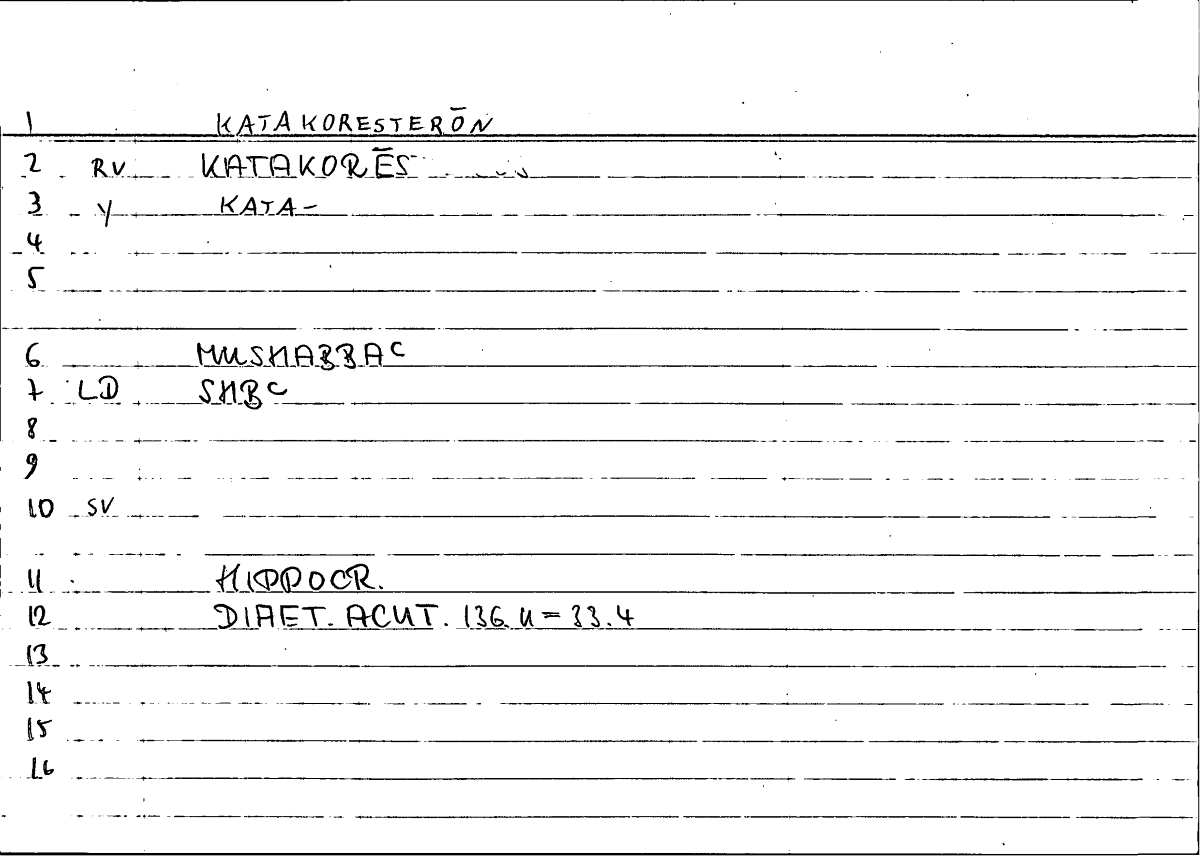 1 KATAKORESTERŌN
2 RV KATAKORĒS
3 Y KATA-
4
5
6 MUSHABBAC
7 LD SHBC
8
9
10 SV
11 HIPPOCR.
12 DIAET. ACUT. 136 U = 33.4
13
14
15
16